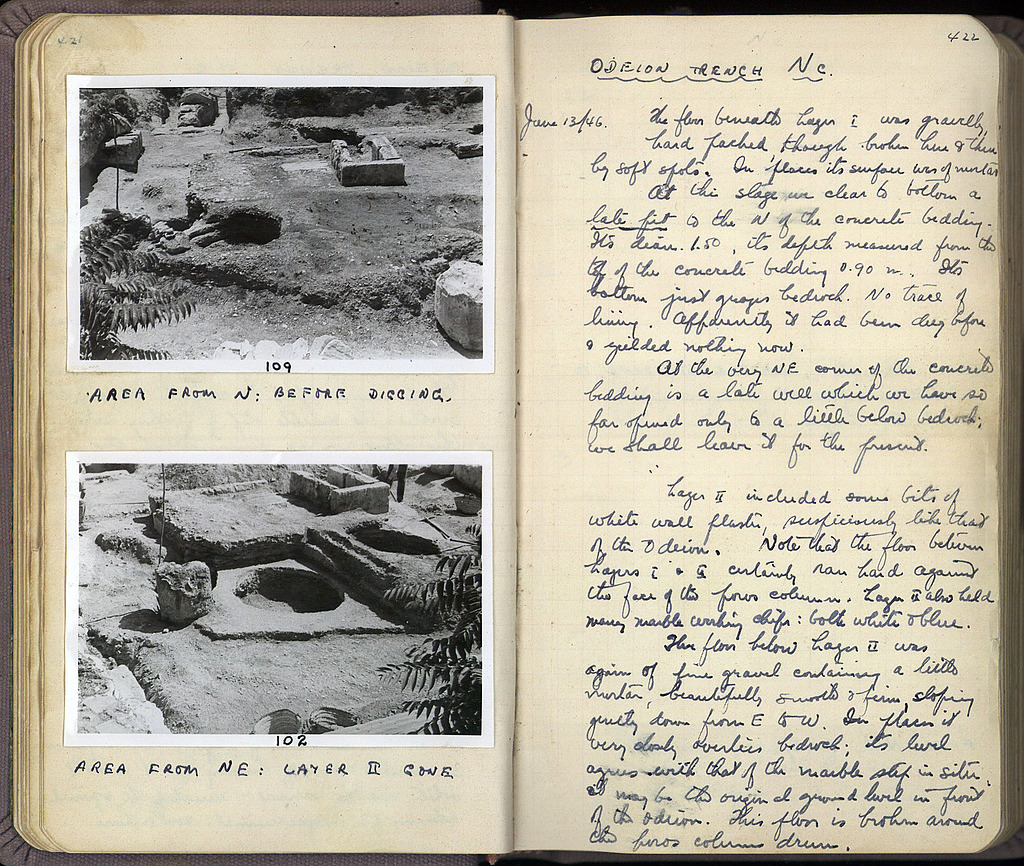 421
109
AREA FROM N: BEFORE DIGGING.
102
AREA FROM NE: LAYER II GONE
422
ODEION TRENCH NC.
June 13/46. The floor beneath Layer I was gravelly,
hard packed though broken here & there
by soft spots. In places its surface was of mortar
At this stage we clear to bottom a
late pit to the N of the concrete bedding.
Its diam. 1.50, its depth measured from the
of the concrete bedding 0.90 m. Its
bottom just grazes bedrock. No trace of
lining. Apparently it had been dug before
& yielded nothing now.
At the very NE corner of the concrete
bedding is a late well which we have so
far opened only to a little below bedrock;
we shall leave it for the present.
Layer II included some bits of
white wall plaster, suspiciously like that
of the Odeion. Note that the floor between
Layers I & II certainly ran hard against
the face of the poros column. Layer II also held
many marble working chips: both white & blue.
The floor below Layer II was
again of fine gravel containing a little
mortar, beautifully smooth & firm, sloping
gently down from E to W. In places it
very closely overlies bedrock; its level
agrees with that of the marble step in situ.
It may be the original ground level in front
of the Odeion. This floor is broken around
the poros column drum.